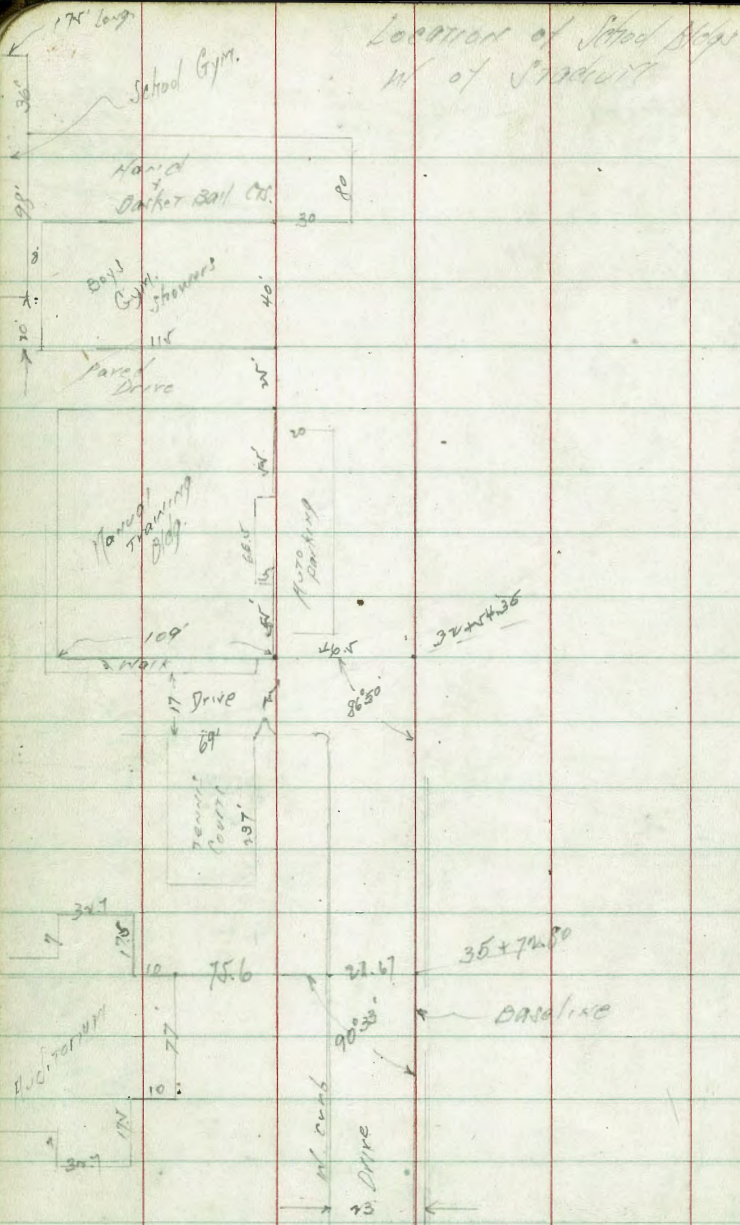 Location of School Bldgs
W of Stadium
175' Long
36'
School Gym.
98'
Hand
&
Basket Ball Cts.
80
30
Boys
Gym.
Showers
40'
20'
115
Paved
Drive
25'
20
Manual
Training
Bldg.
66.5
Auto
Parking
109'
Walk
46.5
32+54.35
86°50'
17
Drive
69'
Tennis
Courts
237'
32.7
7
17.5
10
75.6
27.67
35+72.80
Baseline
90°33'
77
Auditorium
10
17.5
W. Curb
Drive
23